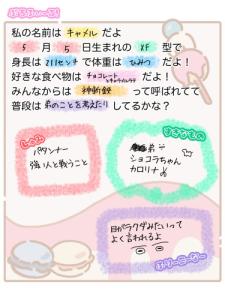 ぷろふぃーる!
私の名前は キャメル だよ
5 月 5 日生まれの XF 型で
身長は 211センチ で体重は ひみつ だよ!
好きな食べ物は チョコレート だよ!
みんなからは 神斬級 って呼ばれてて
普段は 弟のことを考えたり してるかな?
しゅみ
パタンナー
強い人と戦うこと
すきなもの
弟
ショコラちゃん
カロリナ
目がラクダみたいって
よく言われるよ
ふりーコーナー